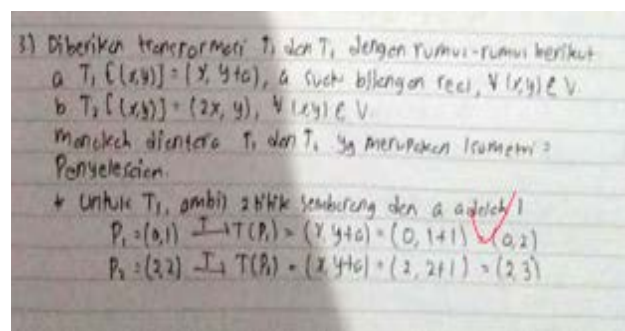 3) Diberikan transformasi T₁ dan T₂ dengan rumus-rumus berikut
a T₁ [(x,y)] = (x, y+a), a suatu bilangan reel, ∀ (x,y) ∈ V
b T₂ [(x,y)] = (2x, y), ∀ (x,y) ∈ V
manakah diantara T₁ dan T₂ yg merupakan isometri ?
Penyelesaian.
* Untuk T₁, ambil 2 titik sembarang dan a adalah 1
P₁ = (0,1) → T(P₁) = (x, y+a) = (0, 1+1) = (0,2)
P₂ = (2,2) → T(P₂) = (x, y+a) = (2, 2+1) = (2,3)